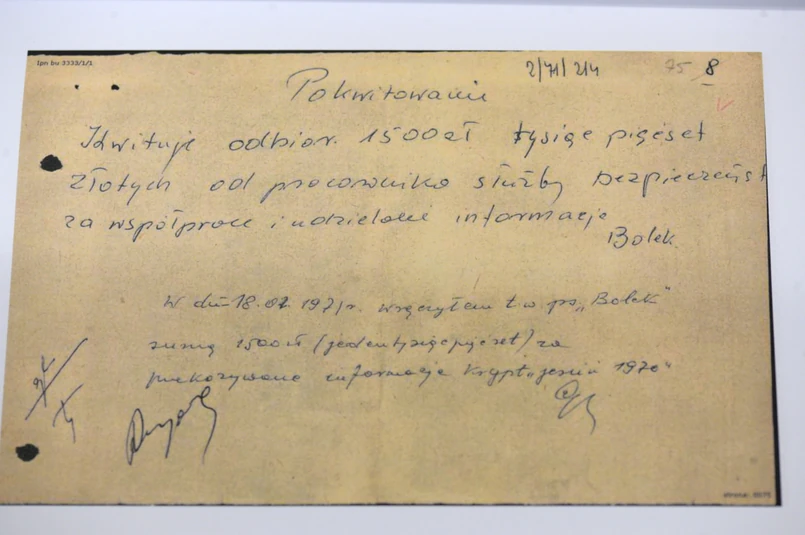 Ipn bu 3333/1/1
2/71/214 75 8
Pokwitowanie
Kwituje odbior. 1500zł tysiąc pięćset
złotych od pracownika służby bezpieczeńst
za współprace i udzielone informacje
Bolek
W dniu 18.01.1971r. wręczyłem t.w ps. „Bolek"
sumę 1500zł (jedentysiącpięćset) za
przekazywane informacje krypt. „jesień 1970"